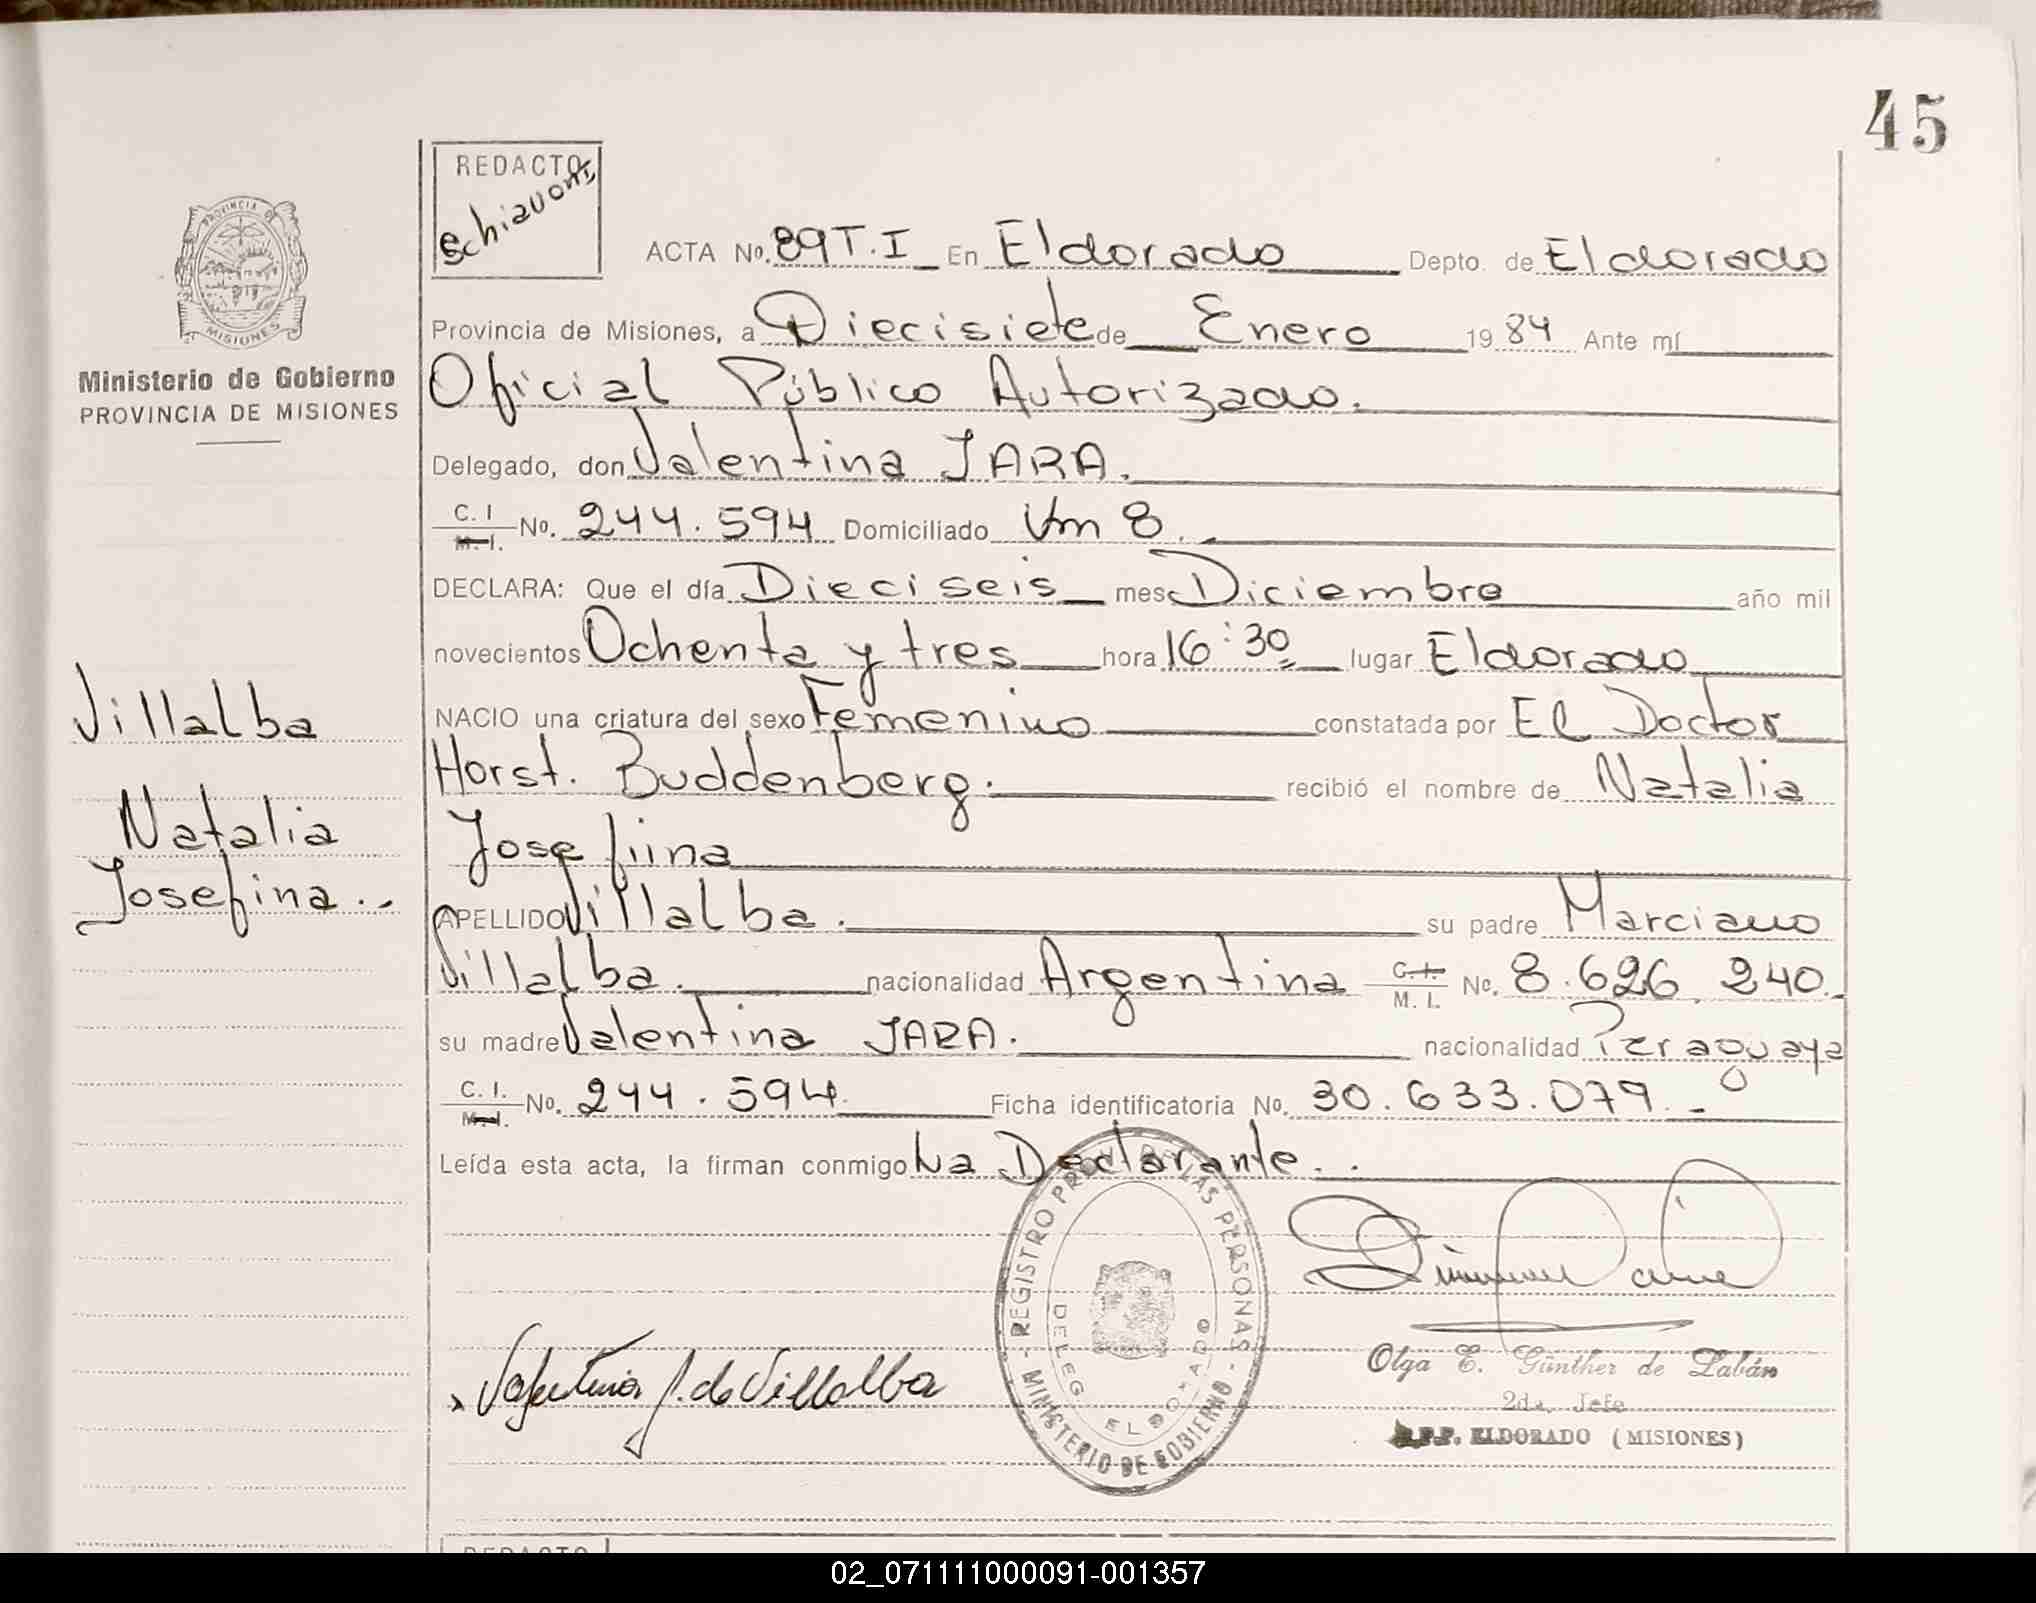 45
REDACTO
Schiavoni
ACTA No. 89 T.I En Eldorado Depto. de Eldorado
Provincia de Misiones, a Diecisiete de Enero 1984 Ante mí
Oficial Público Autorizado.
Delegado, don Valentina JARA.
C. I M. I. No. 244.594 Domiciliado Km 8.
DECLARA: Que el día Dieciseis mes Diciembre año mil
novecientos Ochenta y tres hora 16:30 lugar Eldorado
NACIO una criatura del sexo Femenino constatada por El Doctor
Horst. Buddenberg. recibió el nombre de Natalia
Josefiina
APELLIDO Villalba. su padre Marciano
Villalba. nacionalidad Argentina C. I. M. I. No. 8.626.240.
su madre Valentina JARA. nacionalidad Paraguaya
C. I. M. I. No. 244.594. Ficha identificatoria No. 30.633.079.
Leída esta acta, la firman conmigo La Declarante..
PROVINCIA DE
MISIONES
Ministerio de Gobierno
PROVINCIA DE MISIONES
Villalba
Natalia
Josefina..
- REGISTRO PROV. DE LAS PERSONAS - MINISTERIO DE GOBIERNO
DELEG. ELDORADO
Valentina J. de Villalba
Olga E. Günther de Labán
2da. Jefe
R.P.P. ELDORADO (MISIONES)
REDACTO
02_071111000091-001357